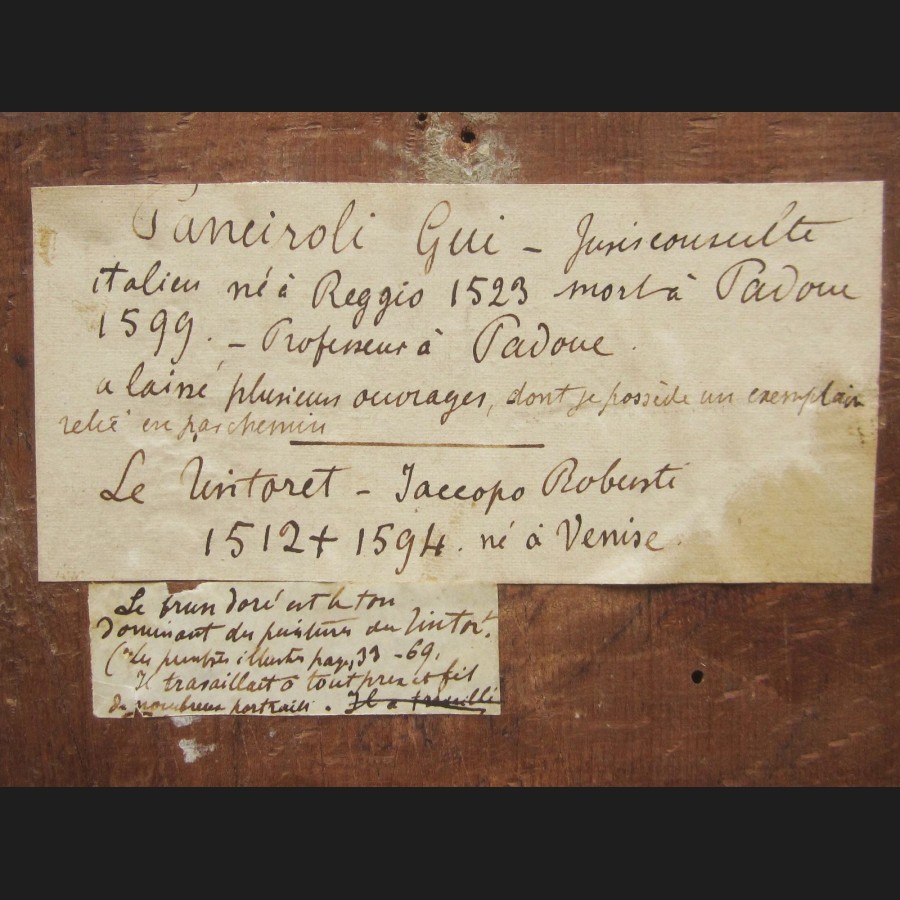 Panciroli Gui - Jurisconsulte
italien né à Reggio 1523 mort à Padoue
1599. - Professeur à Padoue.
a laissé plusieurs ouvrages, dont je possède un exemplaire
relié en parchemin
Le Tintoret - Jaccopo Robusti
1512 + 1594. né à Venise.
Le brun doré est le ton
dominant des peintures du Tintort.
(Les peintres illustres page, 33 - 69.
Il travaillait à tout prix et fit
de nombreux portraits. Il a travaillé